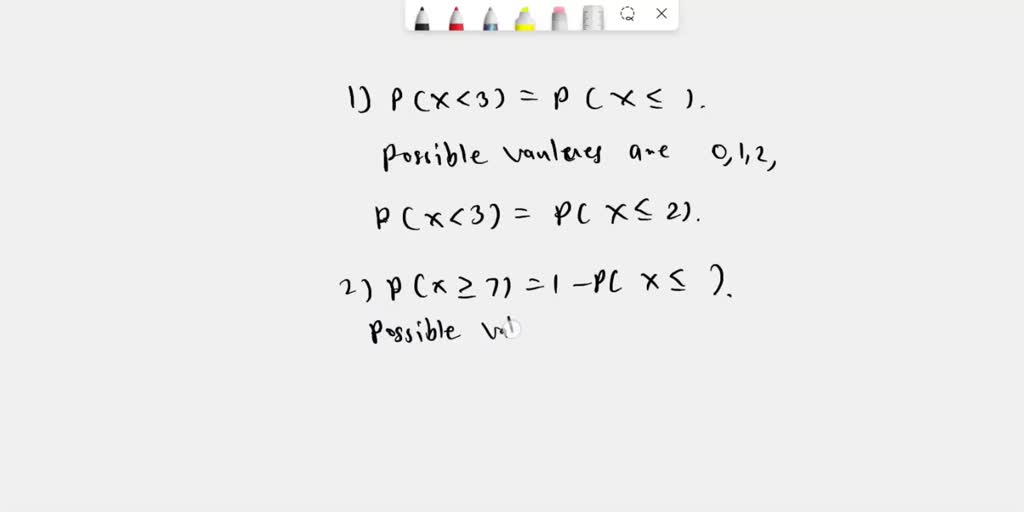 1) P(x<3) = P(x≤ ).
Possible vauleves are 0,1,2,
P(x<3) = P(x≤2).
2) P(x≥7) = 1-P(x≤ ).
Possible